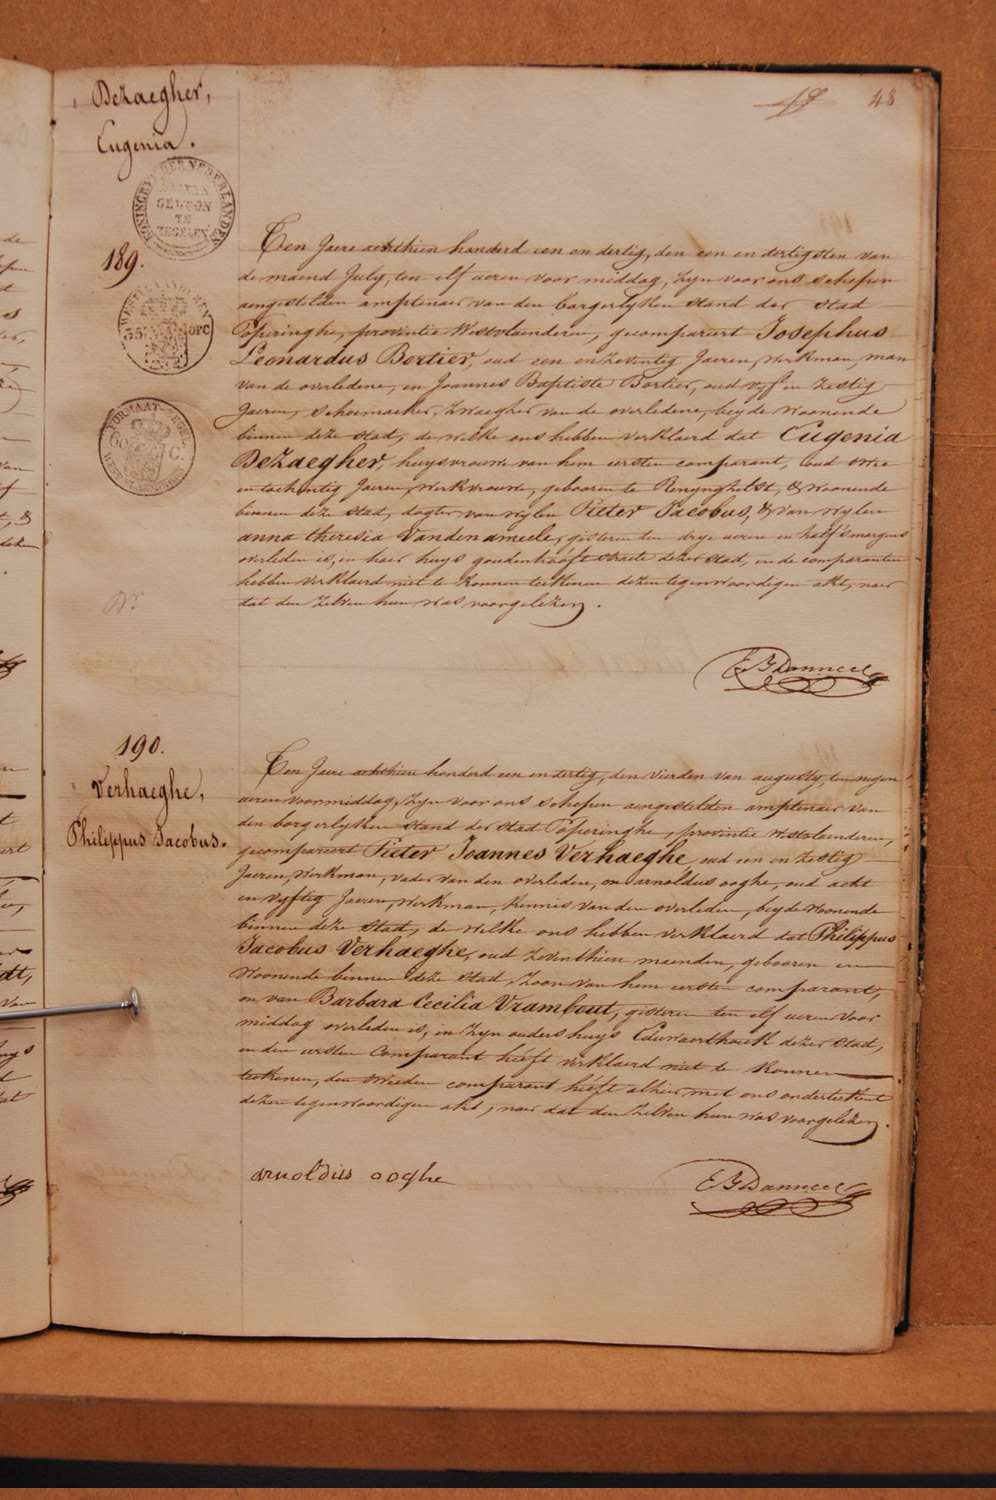 48
DeZaegher,
Eugenia.
KONINGRYK DER NEDERLANDEN
GEWOON
TE
ZEGELEN
189.
WEST VLAANDEREN
35 OPC
FORMAAT ZEGEL
C.
Ten Jaere achthien honderd een en dertig, den een en dertigsten van
de maend July, ten elf ueren voor middag, Zyn voor ons schepen
aengestelden amptenaer van den borgerlyken stand der stad
Poperinghe, provintie Westvlaenderen, gecompareert Josephus
Leonardus Bortier, oud een en Zeventig Jaeren, Werkman, man
van de overledene, en Joannes Baptiste Bortier, oud vyf en Zestig
Jaeren, schoemaeker, Zwaegher van de overledene, beyde Woonende
binnen deze stad, de welke ons hebben verklaerd dat Eugenia
DeZaegher, huysvrouwe van hem eersten comparant, oud twee
en tachentig Jaeren, Werkvrouwe, gebooren te Renynghelst, & Woonende
binnen deze stad, dogter van wylen Pieter Jacobus, & van wylen
anna theresia Vanden ameele, gisteren ten drye ueren en half s'morgens
overleden is, in haer huys goudenhoofstraete dezer stad, en de comparanten
hebben verklaerd niet te konnen teekenen dezen tegenwoordigen akt, naer
dat den Zelven hun was voorgelezen.
190.
Verhaeghe,
Philippus Jacobus.
Ten Jaere achthien honderd een en dertig, den vierden van augusty, ten negen
ueren voormiddag, Zyn voor ons schepen aengestelden amptenaer van
den borgerlyken stand der stad Poperinghe, provintie Westvlaenderen,
gecompareert Pieter Joannes Verhaeghe oud een en Zestig
Jaeren, Werkman, vader van den overleden, en arnoldus ooghe, oud acht
en vyftig Jaeren, Werkman, kennis van den overleden, beyde Woonende
binnen deze stad, de welke ons hebben verklaerd dat Philippus
Jacobus Verhaeghe, oud Zeventhien maenden, gebooren en
Woonende binnen deze stad, Zoon van hem eersten comparant,
en van Barbara Cecilia Vrambout, gisteren ten elf ueren voor
middag overleden is, in Zyn ouders huys dezer stad,
en den eersten Comparant heeft verklaerd niet te konnen
teekenen, den tweeden comparant heeft alhier met ons onderteekent
dezen tegenwoordigen akt, naer dat den Zelven hun was voorgelezen.
arnoldus ooghe